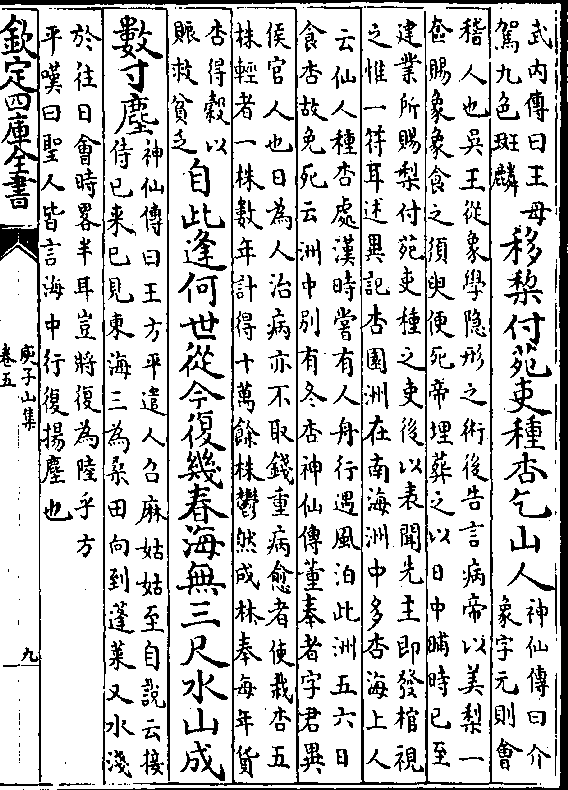 武内傳曰王母
駕九色斑麟
移棃付苑吏種杏乞山人
神仙傳曰介
象字元則會
稽人也吳王從象學隐形之術後告言病帝以美梨一
奩賜象象食之須臾便死帝埋葬之以日中晡時已至
建業所賜梨付苑吏種之吏後以表聞先主即發棺視
之惟一符耳述異記杏園洲在南海洲中多杏海上人
云仙人種杏處漢時嘗有人舟行遇風泊此洲五六日
食杏故免死云洲中别有冬杏神仙傳董奉者字君異
侯官人也日為人治病亦不取錢重病愈者使栽杏五
株輕者一株數年計得十萬餘株鬱然成林奉每年貨
杏得穀以
賑救貧乏
自此逢何世從今復幾春海無三尺水山成
數寸塵
神仙傳曰王方平遣人召麻姑姑至自說云接
侍已来已見東海三為桑田向到蓬萊又水淺
於往日會時畧半耳豈將復為陸乎方
平嘆曰聖人皆言海中行復揚塵也
欽定四庫全書
庾子山集
卷五
九